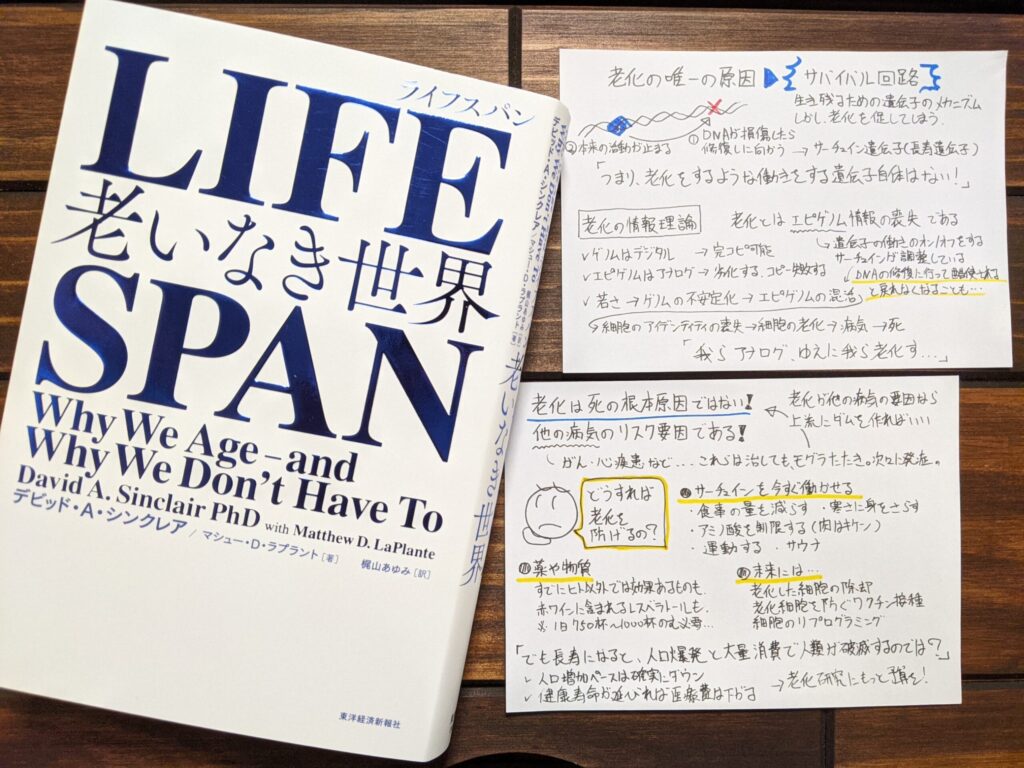 LIFE
ライフスパン
老いなき世界
SPAN
Why We Age – and
Why We Don't Have To
David A. Sinclair PhD with Matthew D. LaPlante
デビッド・A・シンクレア / マシュー・D・ラプラント［著］
梶山あゆみ［訳］
東洋経済新報社
老いなき世界
老化の唯一の原因 ▶ サバイバル回路
生き残るための遺伝子のメカニズム
しかし、老化を促してしまう。
① DNAが損傷したら
修復しに向かう → サーチュイン遺伝子(長寿遺伝子)
②本来の活動が止まる
「つまり、老化をするような働きをする遺伝子自体はない!」
老化の情報理論 老化とは エピゲノム情報の喪失 である
↳遺伝子の働きのオン/オフをする
サーチュインが調整している
✓ ゲノムはデジタル → 完コピ可能
✓ エピゲノムはアナログ → 劣化する、コピー失敗する
↳DNAの修復に行って
と戻れなくなることも…
✓ 若さ → ゲノムの不安定化 → エピゲノムの混沌
↳細胞のアイデンティティの喪失 → 細胞の老化 → 病気 → 死
「我らアナログ、ゆえに我ら老化す…」
老化は死の根本原因ではない!
他の病気のリスク要因である!
老化が他の病気の要因なら
上流にダムを作ればいい
がん・心疾患など… これらは治しても、モグラたたき。次々に発症。
どうすれば
老化を
防げるの?
サーチュインを今すぐ働かせる
・食事の量を減らす ・寒さに身をさらす
・アミノ酸を制限する(肉はキケン)
・運動する ・サウナ
薬や物質
すでにヒト以外では効果あるものも。
赤ワインに含まれるレスベラトロールも。
※1日750杯〜1000杯のむ必要…
未来には…
老化した細胞の除却
老化細胞を防ぐワクチン接種
細胞のリプログラミング
「でも長寿になると、人口爆発と大量消費で人類が破滅するのでは?」
✓ 人口増加ペースは確実にダウン
✓ 健康寿命が延びれば医療費は下がる
→ 老化研究にもっと予算を!